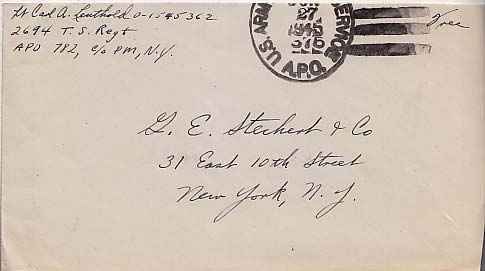 Lt Carl A. Leuthold O-1545362
2694 T. S. Regt
APO 782, c/o PM, N.Y.
U.S. ARMY SERVICE
27
1945
A.P.O.
Free
G. E. Stechert & Co
31 East 10th Street
New York, N. Y.